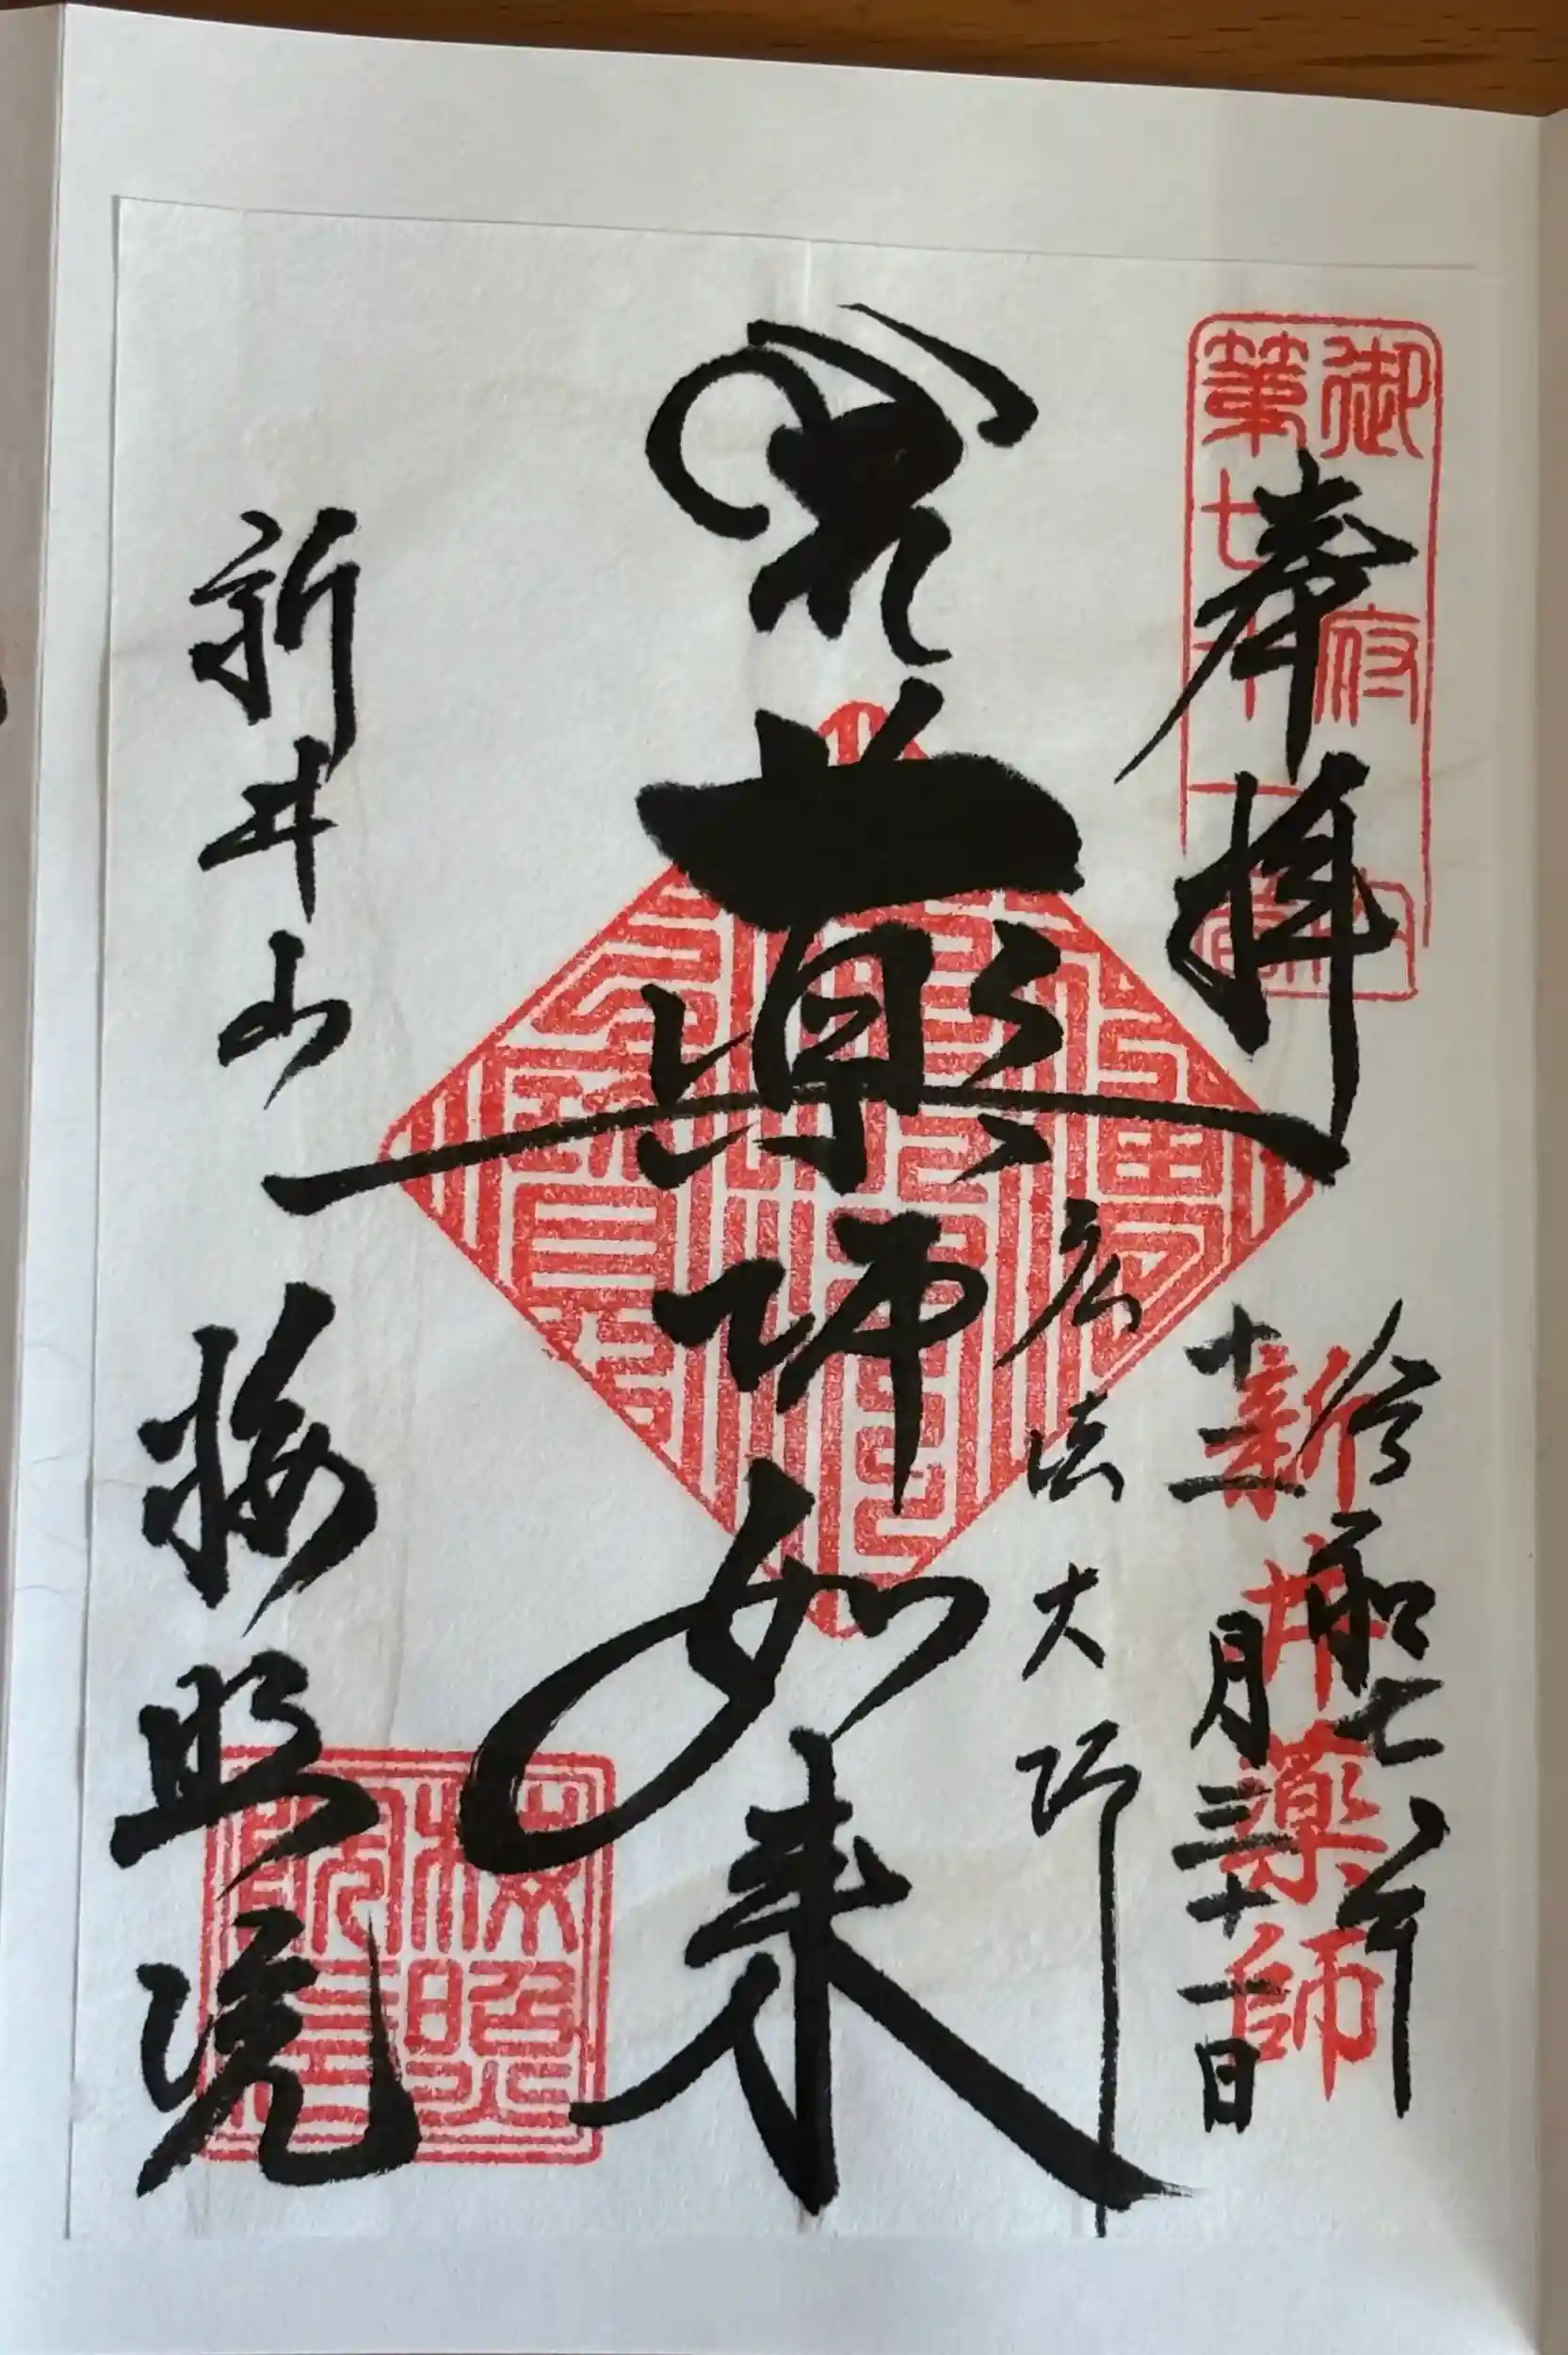 御府内
第七十一番
奉拝
令和七年
十二月三十一日
新井薬師
弘法大師
薬師如来
新井山
梅照院